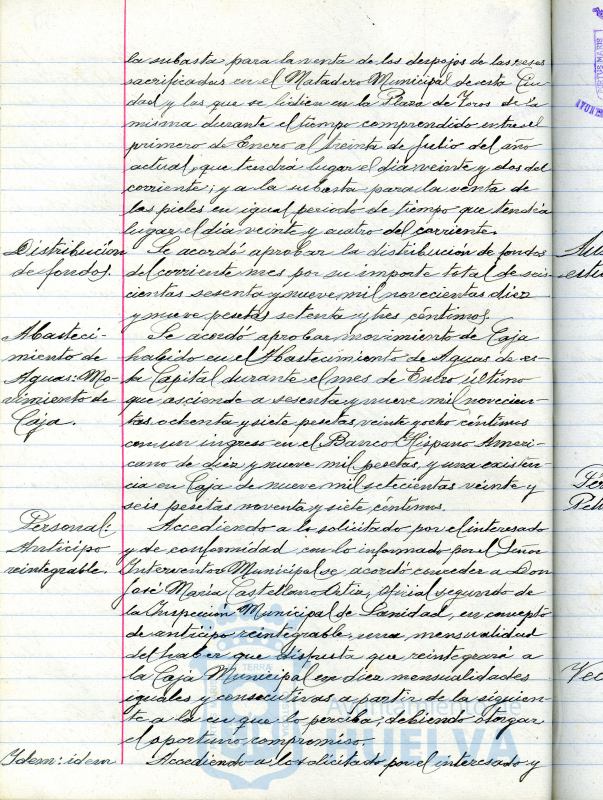 la subasta para la venta de los despojos de las reses
sacrificadas en el Matadero Municipal de esta Ciu-
dad y las que se lidien en la Plaza de Toros de la
misma durante el tiempo comprendido entre el
primero de Enero al treinta de Julio del año
actual, que tendrá lugar el dia veinte y dos del
corriente; y a la subasta para la venta de
las pieles en igual periodo de tiempo que tendrá
lugar el dia veinte y cuatro del corriente.
Distribución de fondos.
Se acordó aprobar la distribución de fondos
del corriente mes por su importe total de seis-
cientas sesenta y nueve mil novecientas diez
y nueve pesetas setenta y tres céntimos.
Abasteci-
miento de
Aguas: Mo-
vimiento de
Caja.
Se acordó aprobar movimiento de Caja
habido en el Abastecimiento de Aguas de es-
ta Capital durante el mes de Enero último
que asciende a sesenta y nueve mil novecien-
tas ochenta y siete pesetas veinte y ocho céntimos
con un ingreso en el Banco Hispano Ameri-
cano de diez y nueve mil pesetas, y una existen-
cia en Caja de nueve mil setecientas veinte y
seis pesetas noventa y siete céntimos.
Personal:
Anticipo
reintegrable.
Accediendo a lo solicitado por el interesado
y de conformidad con lo informado por el Señor
Interventor Municipal se acordó conceder a Don
José Maria Castellano Ortiz, Oficial segundo de
la Inspección Municipal de Sanidad, en concepto
de anticipo reintegrable, una mensualidad
del haber que disfruta que reintegrará a
la Caja Municipal en diez mensualidades
iguales y consecutivas a partir de la siguien-
te a la en que lo perciba, debiendo otorgar
el oportuno compromiso.
Idem: idem
Accediendo a lo solicitado por el interesado y
Ayuntamiento de
HUELVA